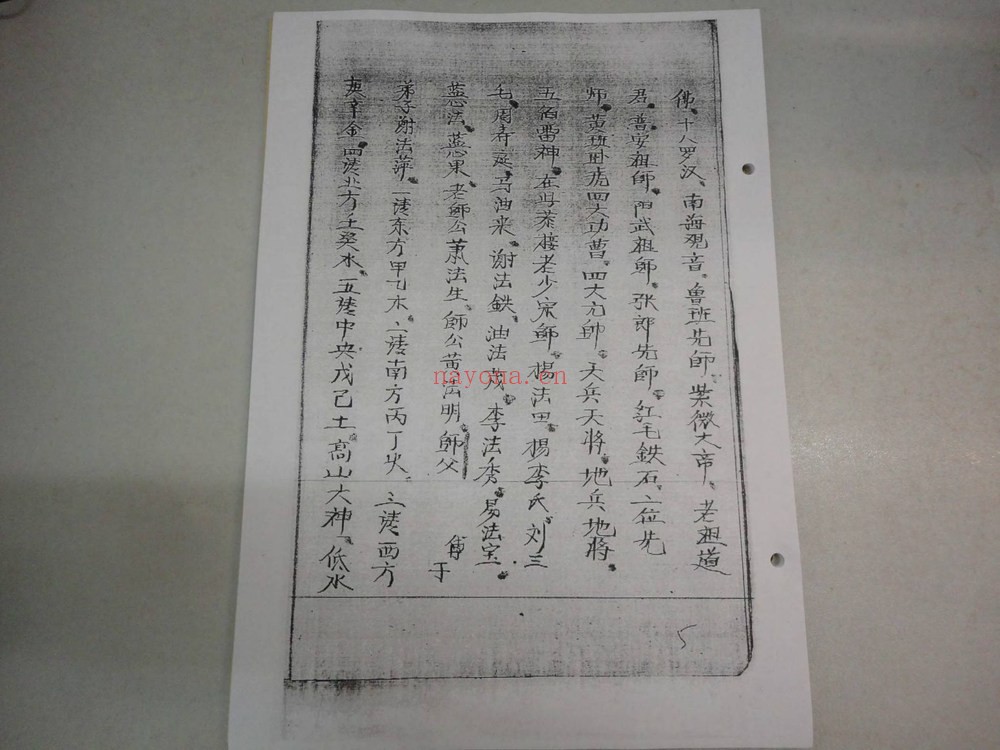 佛、十八罗汉、南海观音。鲁班先師、紫微大帝、老祖道
君。普安祖師。祖師。张郎先師。紅毛鉄石。二位先
師、黄班卧虎四大功曹。四大元帥。天兵天将。地兵地將。
五佰雷神。在老少宗師。楊法田。楊李氏、刘三
毛、周寿延、謝法鉄、油法茂。李法秀。易法宝。
法。果。老師公萧法生。師公黄法明。師父
傅于
弟子謝法萍。一请东方甲乙木。二请南方丙丁火。三请西方
庚辛金。四请北方壬癸水。五请中央戊己土。高山大神。低水
5
nayona.cn